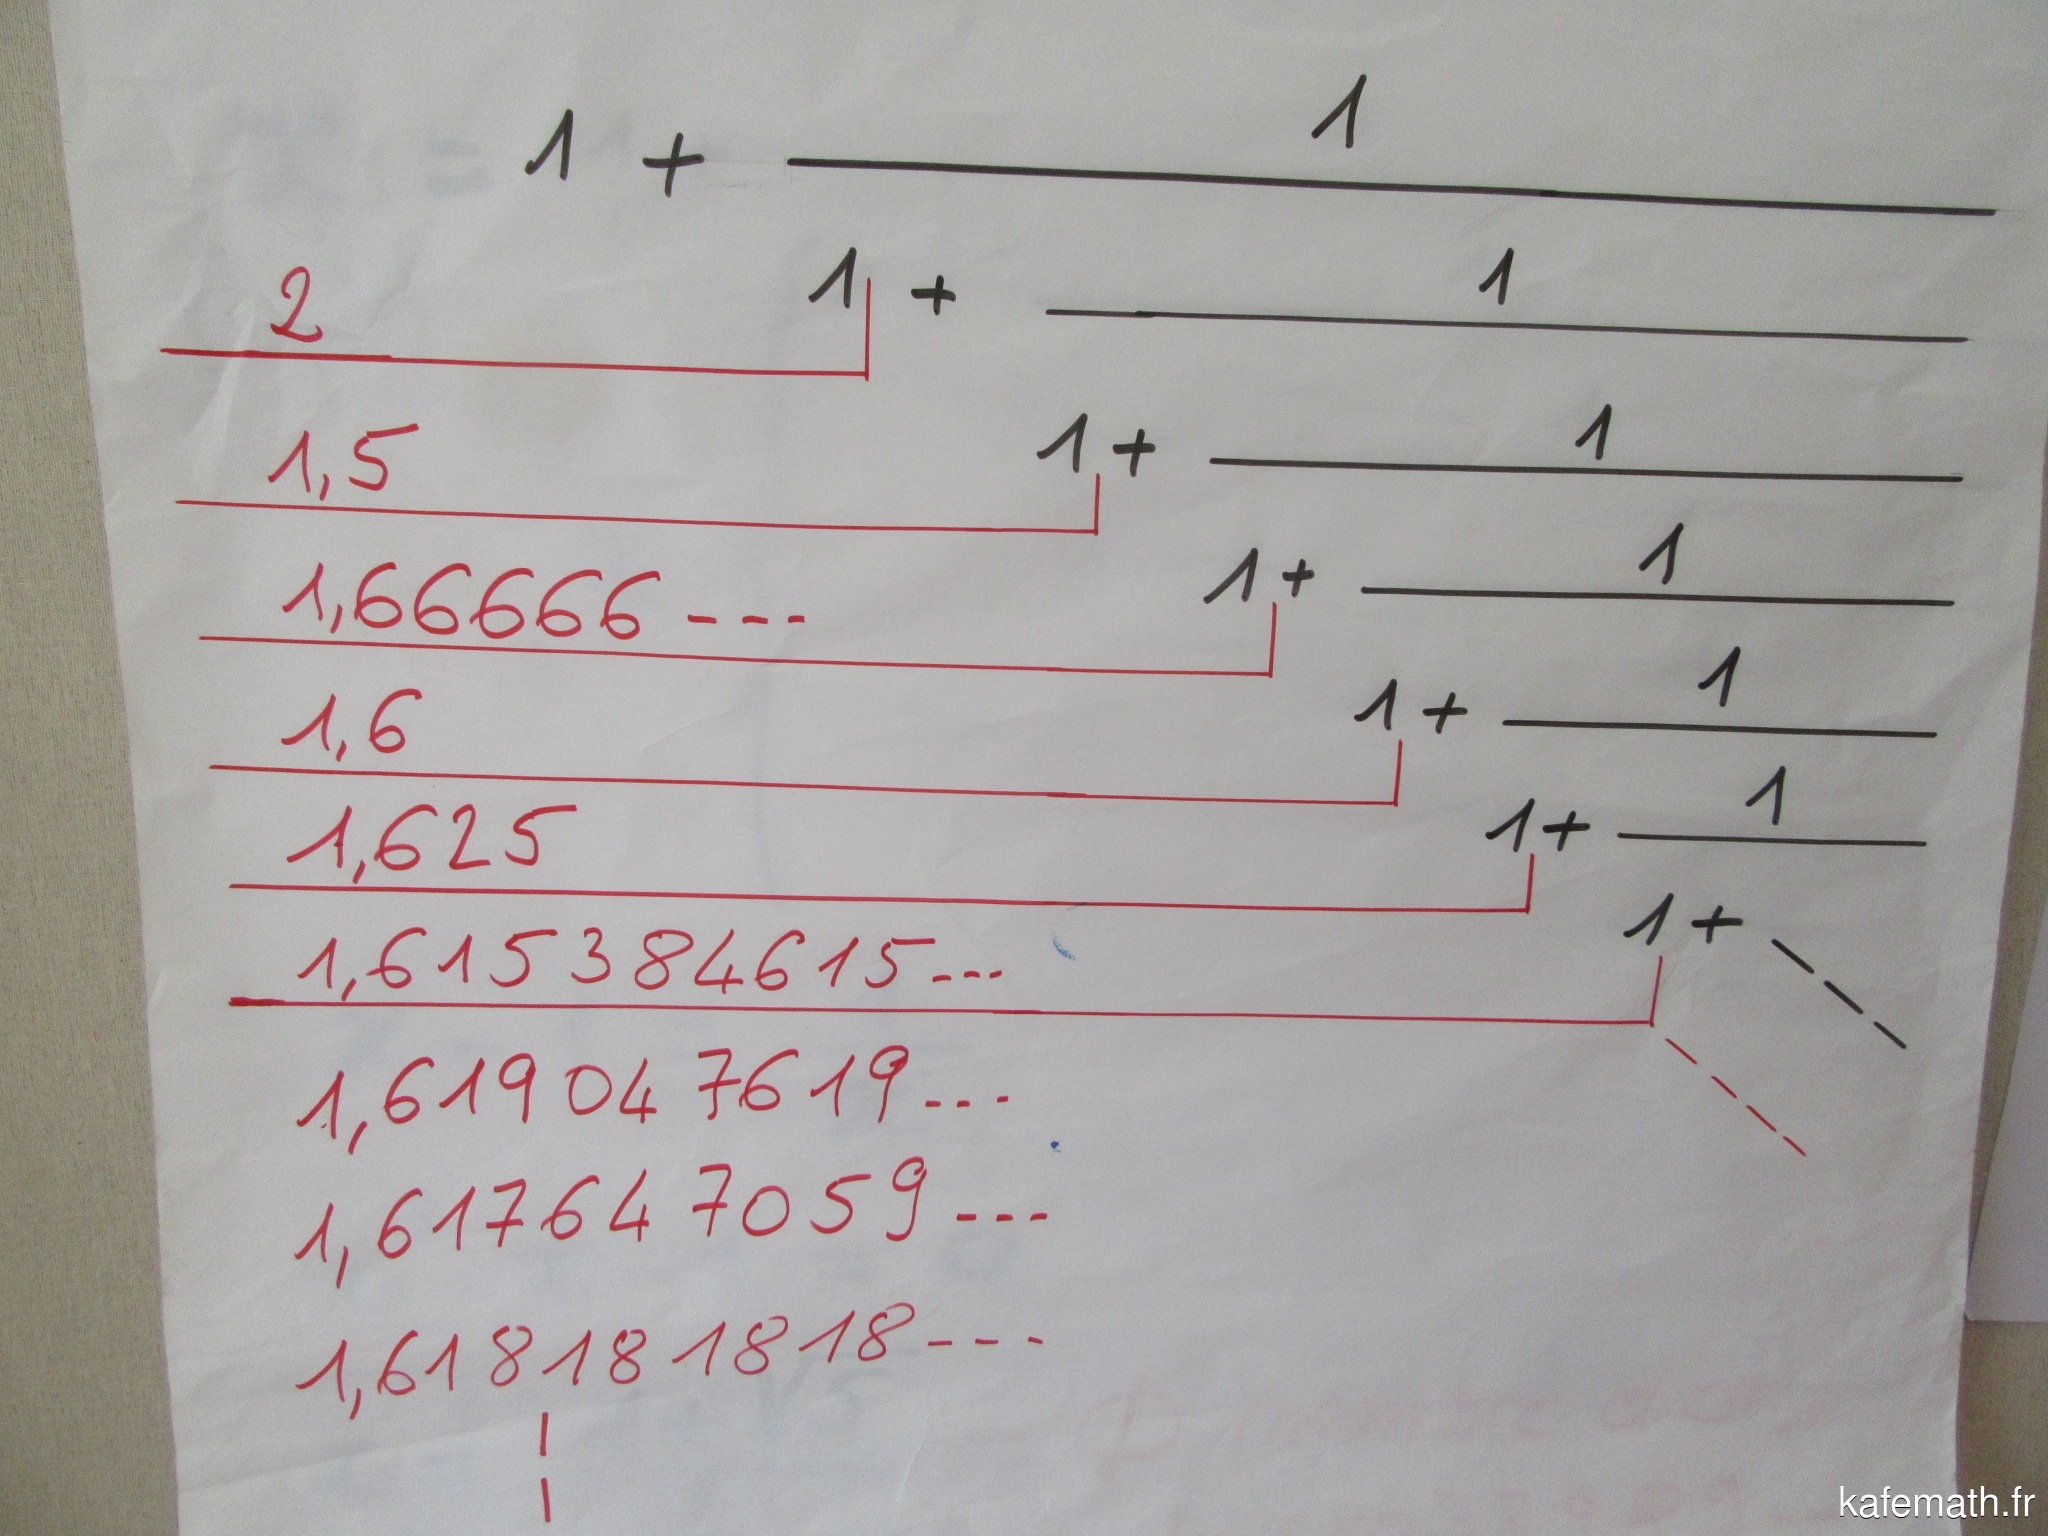 1
1 +
1
1 +
2
1
1 +
1,5
1
1 +
1,66666 ---
1
1 +
1,6
1
1 +
1,625
1 +
1,615384615---
1,619047619---
1,617647059---
1,618181818---
kafemath.fr